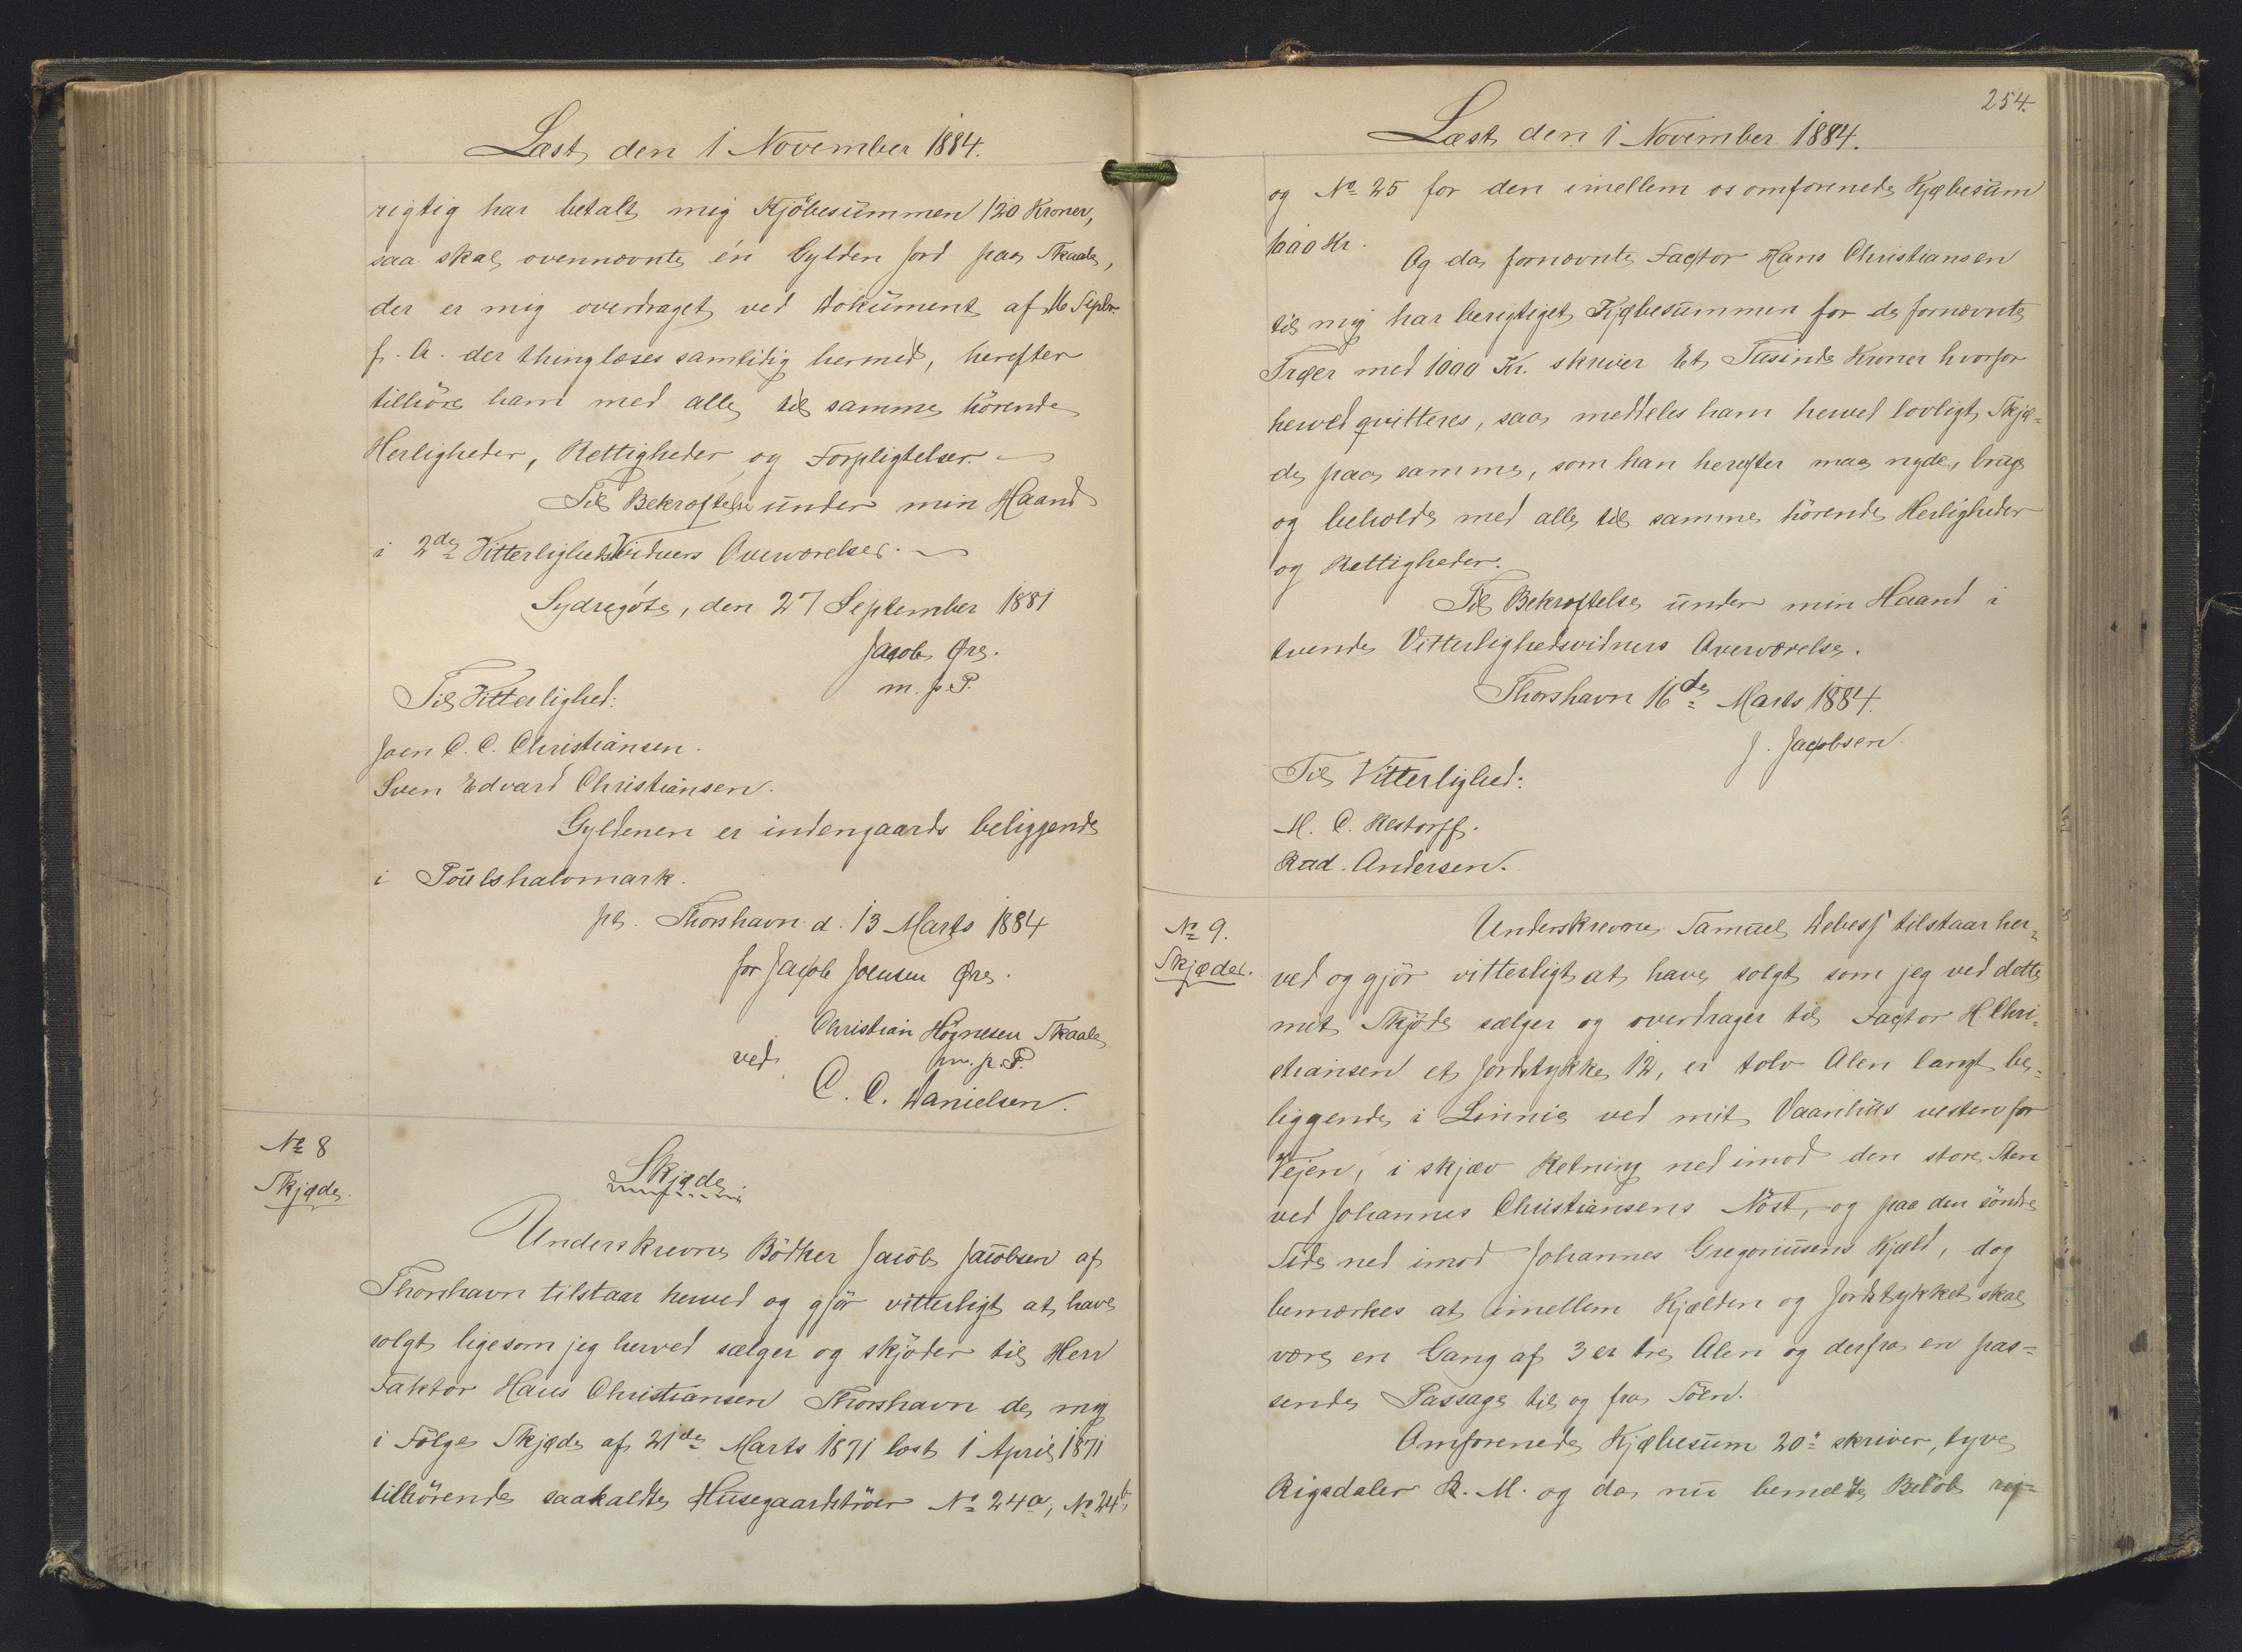 Læst den 1 November 1884.
rigtig har betalt mig Kjöbesummen 120 Kroner,
saa skal ovennævnte én Gylden Jord paa Skaale,
der er mig overdraget ved Dokument af 16 Septbr.
f. A. der thinglæses samtidig hermed, herefter
tilhöre ham med alle til samme hörende
Herligheder, Rettigheder og Forpligtelser.
Til Bekræftelse under min Haand
i 2de Vitterlighedsvidners Overværelse.
Sydregöte, den 27 September 1881
Jacob Øre.
m. p. P.
Til Vitterlighed:
Joen C. C. Christiansen.
Sven Edvard Christiansen.
Gyldenen er indengaards beliggende
i Poulshalvmark.
pt. Thorshavn d. 13 Marts 1884
for Jacob Joensen Øre.
Christian Högnesen Skaale
ved m. p. P.
C. C. Danielsen.
No 8
Skjøde.
Skjøde.
Underskrevne Bödker Jacob Jacobsen af
Thorshavn tilstaar herved og gjör vitterligt at have
solgt ligesom jeg herved sælger og skjöder til Herr
Faktor Hans Christiansen Thorshavn de mig
i Fölge Skjøde af 21de Marts 1871 læst 1 April 1871
tilhörende saakaldte Husegaardströer No 24a, No 24b,
254.
Læst den 1 November 1884.
og No 25 for den imellem os omforenede Kjøbesum
1000 Kr.
Og da fornævnte Factor Hans Christiansen
til mig har berigtiget Kjøbesummen for de fornævnte
Trøer med 1000 Kr. skriver Et Tusinde Kroner hvorfor
herved qvitteres, saa meddeles ham herved lovligt Skjø-
de paa samme, som han herefter maa nyde, bruge
og beholde med alle til samme hörende Herligheder
og Rettigheder.
Til Bekræftelse under min Haand i
tvende Vitterlighedsvidners Overværelse.
Thorshavn 16de Marts 1884.
J. Jacobsen.
Til Vitterlighed:
M. C. Restorff.
Rud. Andersen.
No 9.
Skjøde.
Underskrevne Samuel Debess tilstaar her-
ved og gjör vitterligt at have solgt som jeg ved dette
mit Skjöde sælger og overdrager til Factor H Chri-
stiansen et Jordstykke 12, er tolv Alen langt be-
liggende i Linnie ved mit Vaanhus vesten for
Vejen, i skjæv Retning ned imod den store Sten
ved Johannes Christiansens Nöst, og paa den söndre
Side ned imod Johannes Gregoriussens Kjæld, dog
bemærkes at imellem Kjælden og Jordstykket skal
være en Gang af 3 er tre Alen og derfra en pas-
sende Passage til og fra Söen.
Omforenede Kjøbesum 20: skriver, tyve
Rigsdaler R. M. og da nu bemeldte Belöb rig-